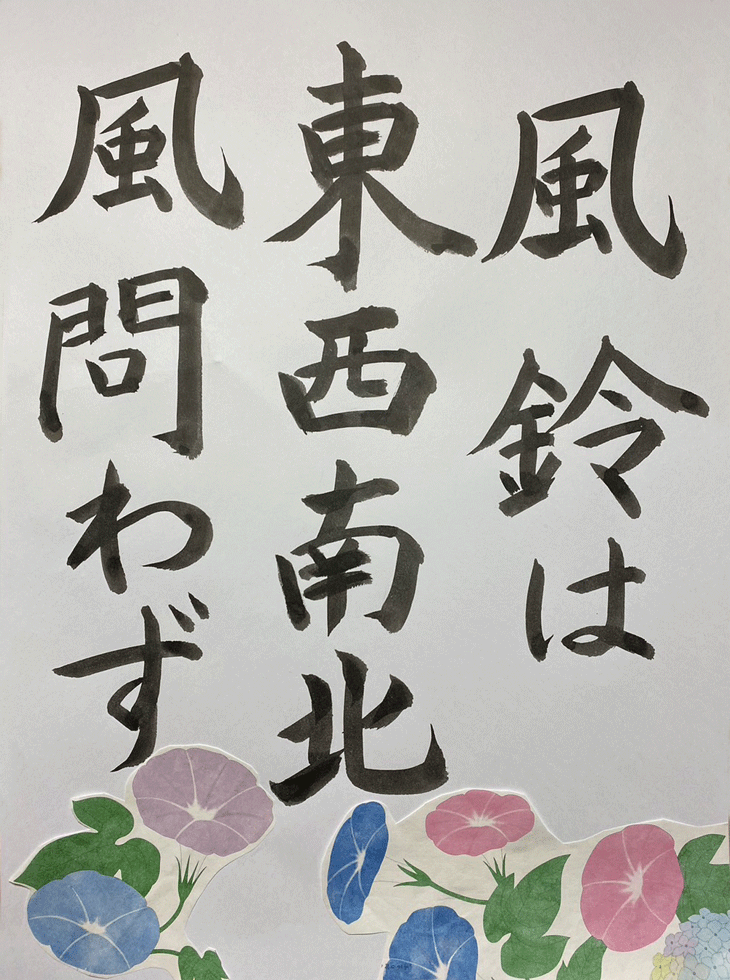 風鈴は
東西南北
風問わず